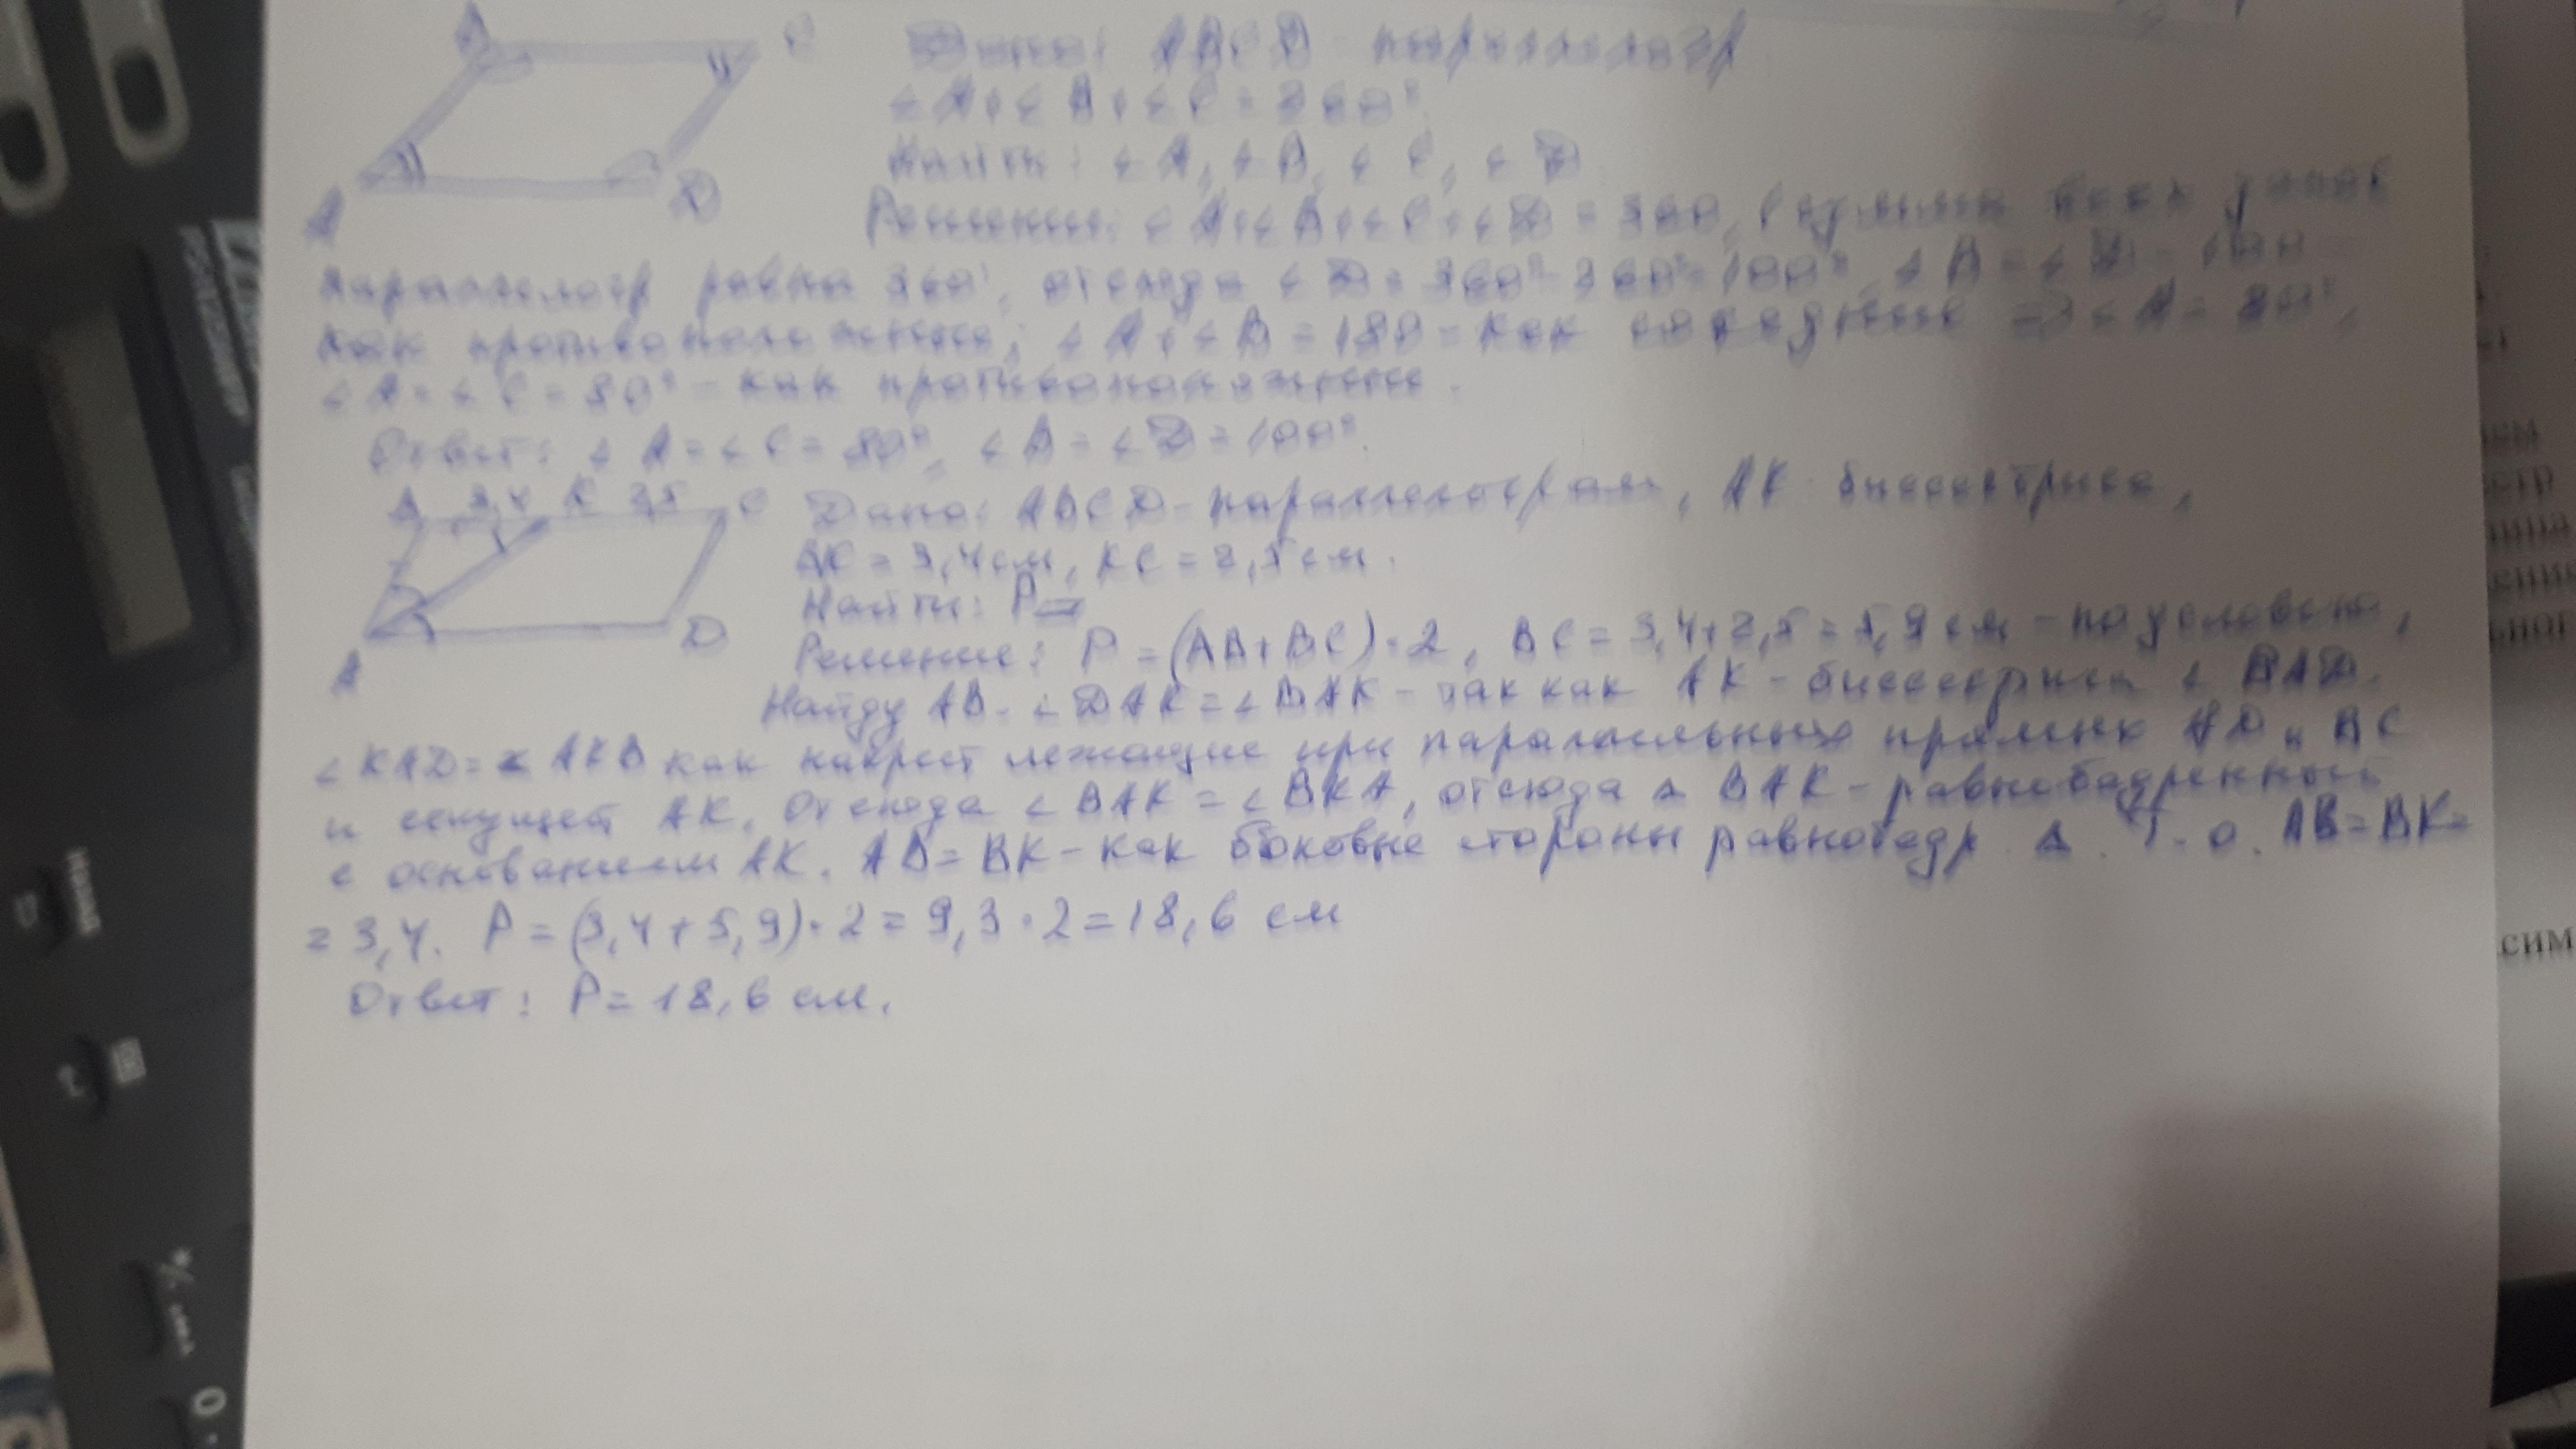 B C
A D
Дано: ABCD - параллелогр
∠A+∠B+∠C=260°
Найти: ∠A, ∠B, ∠C, ∠D
Решение: ∠A+∠B+∠C+∠D=360, (сумма всех углов
параллелогр равна 360°, отсюда ∠D=360°-260°=100°, ∠B=∠D=100
как противоположные; ∠A+∠B=180-как соседние => ∠A=80°,
∠A=∠C=80°-как противоположные.
Ответ: ∠A=∠C=80°, ∠B=∠D=100°.
B 3,4 K 2,5 C
A D
Дано: ABCD-параллелограм, AK-биссектриса,
BK=3,4см, KC=2,5см.
Найти: P=
Решение: P=(AB+BC)·2, BC=3,4+2,5=5,9см-по условию,
Найду AB. ∠DAK=∠BAK-так как AK-биссектриса ∠BAD.
∠KAD=∠AKB как накрест лежащие при параллельных прямых AD и BC
и секущей AK. Отсюда ∠BAK=∠BKA, отсюда ∆ BAK-равнобедренный
с основанием AK. AB=BK-как боковые стороны равнобедр ∆. Т.о. AB=BK=
=3,4. P=(3,4+5,9)·2=9,3·2=18,6 см
Ответ: P=18,6 см.
сим
%
0